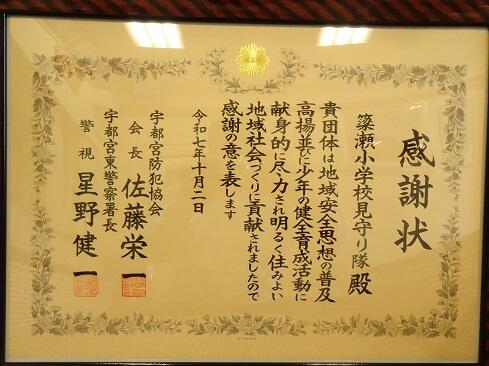 感謝状
簗瀬小学校見守り隊 殿
貴団体は地域安全思想の普及
高揚並びに少年の健全育成活動に
献身的に尽力され明るく住みよい
地域社会づくりに貢献されましたので
感謝の意を表します
令和七年十月二日
宇都宮防犯協会
会長 佐藤栄一
宇都宮東警察署長
警視 星野健一